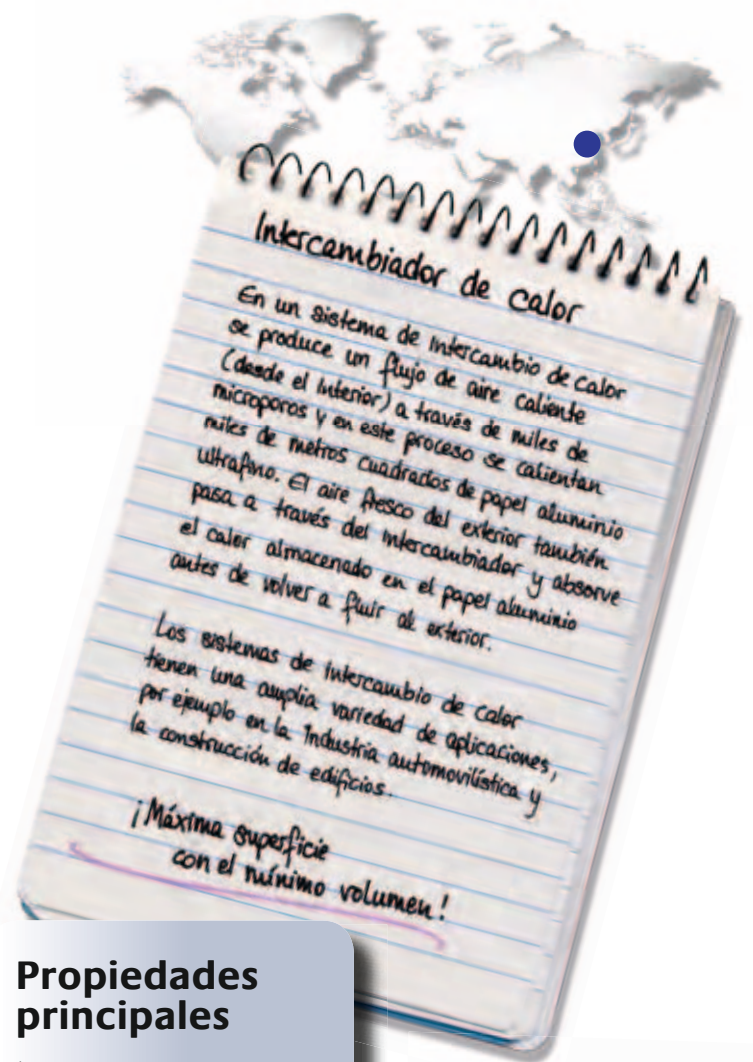 Intercambiador de calor
En un sistema de intercambio de calor
se produce un flujo de aire caliente
(desde el interior) a través de miles de
microporos y en este proceso se calientan
miles de metros cuadrados de papel aluminio
ultrafino. El aire fresco del exterior también
pasa a través del intercambiador y absorve
el calor almacenado en el papel aluminio
antes de volver a fluir al exterior.
Los sistemas de intercambio de calor
tienen una amplia variedad de aplicaciones,
por ejemplo en la industria automovilística y
la construcción de edificios.
¡Máxima superficie
con el mínimo volumen!
Propiedades
principales